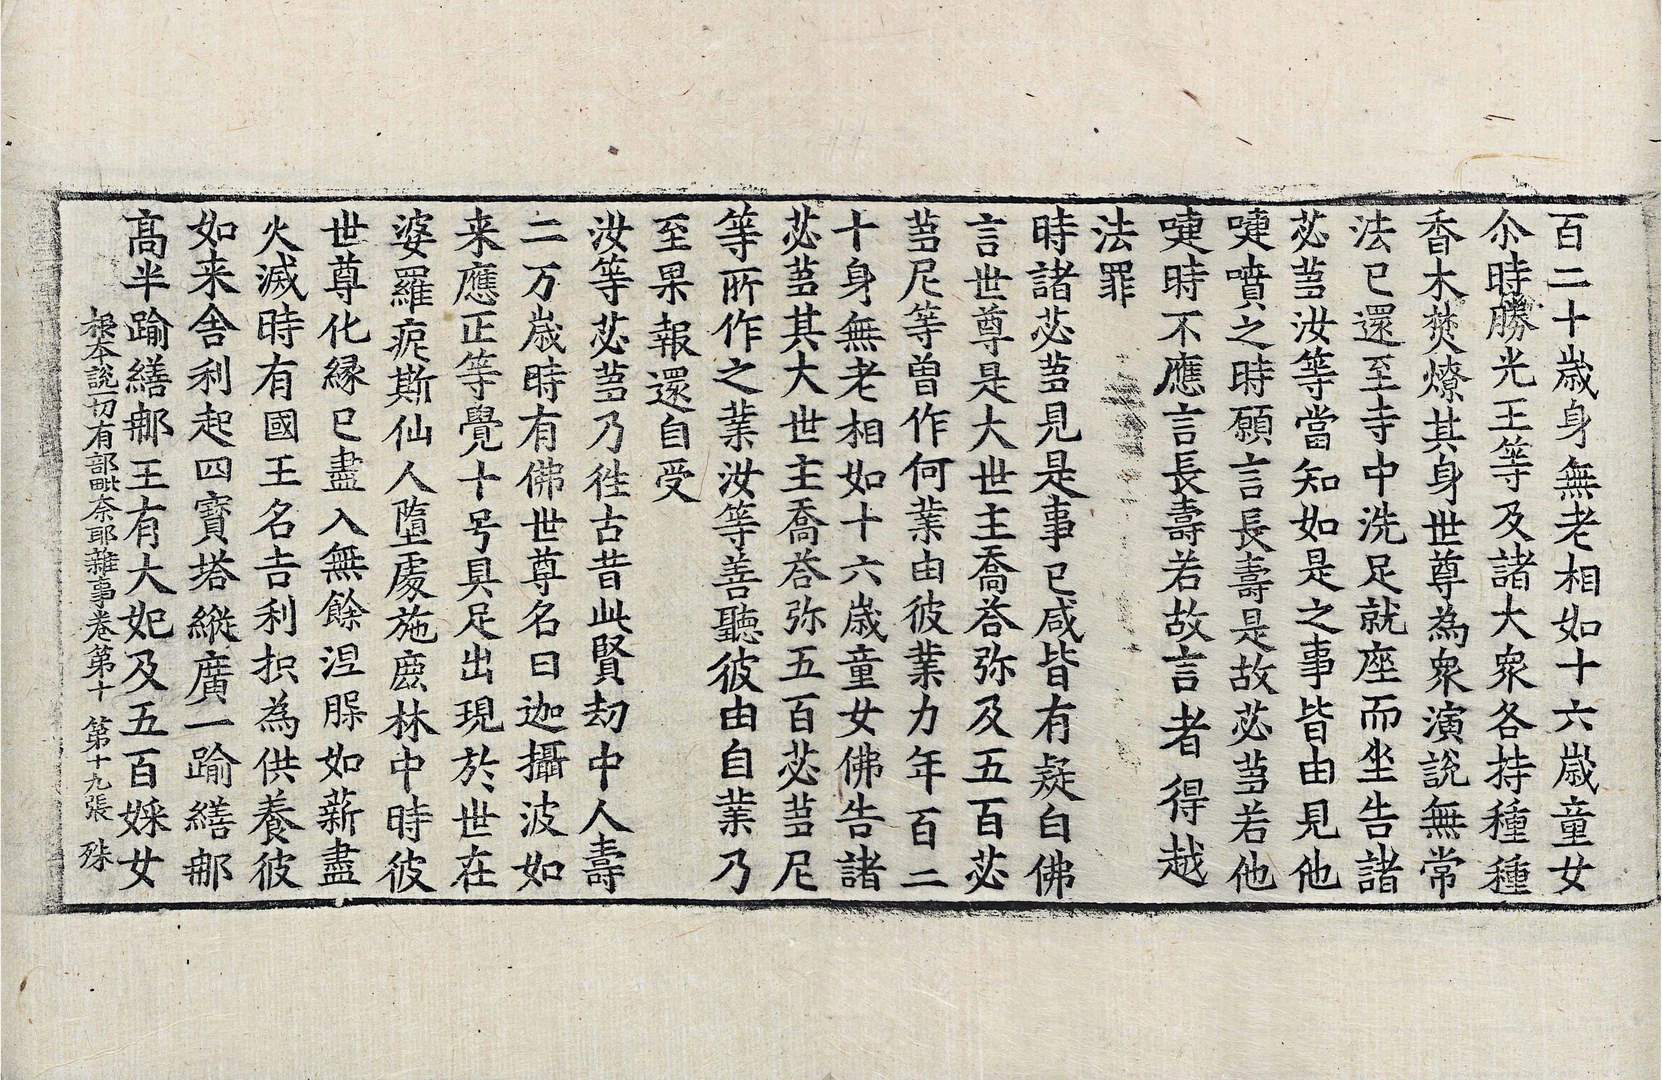 百二十歳身無老相如十六歳童女
尒時勝光王等及諸大衆各持種種
香木焚燎其身世尊為衆演說無常
法已還至寺中洗足就座而坐告諸
苾芻汝等當知如是之事皆由見他
嚏噴之時願言長壽是故苾芻若他
嚏時不應言長壽若故言者得越
法罪
時諸苾芻見是事已咸皆有疑白佛
言世尊是大世主喬荅弥及五百苾
芻尼等曾作何業由彼業力年百二
十身無老相如十六歳童女佛告諸
苾芻其大世主喬荅弥五百苾芻尼
等所作之業汝等善聽彼由自業乃
至果報還自受
汝等苾芻乃徃古昔此賢劫中人壽
二万歳時有佛世尊名曰迦攝波如
来應正等覺十号具足出現於世在
婆羅痆斯仙人墮處施鹿林中時彼
世尊化縁已盡入無餘涅槃如薪盡
火滅時有國王名吉利枳為供養彼
如来舍利起四寶塔縱廣一踰繕那
高半踰繕那王有大妃及五百婇女
根本說一切有部毗奈耶雜事卷第十 第十九張 殊